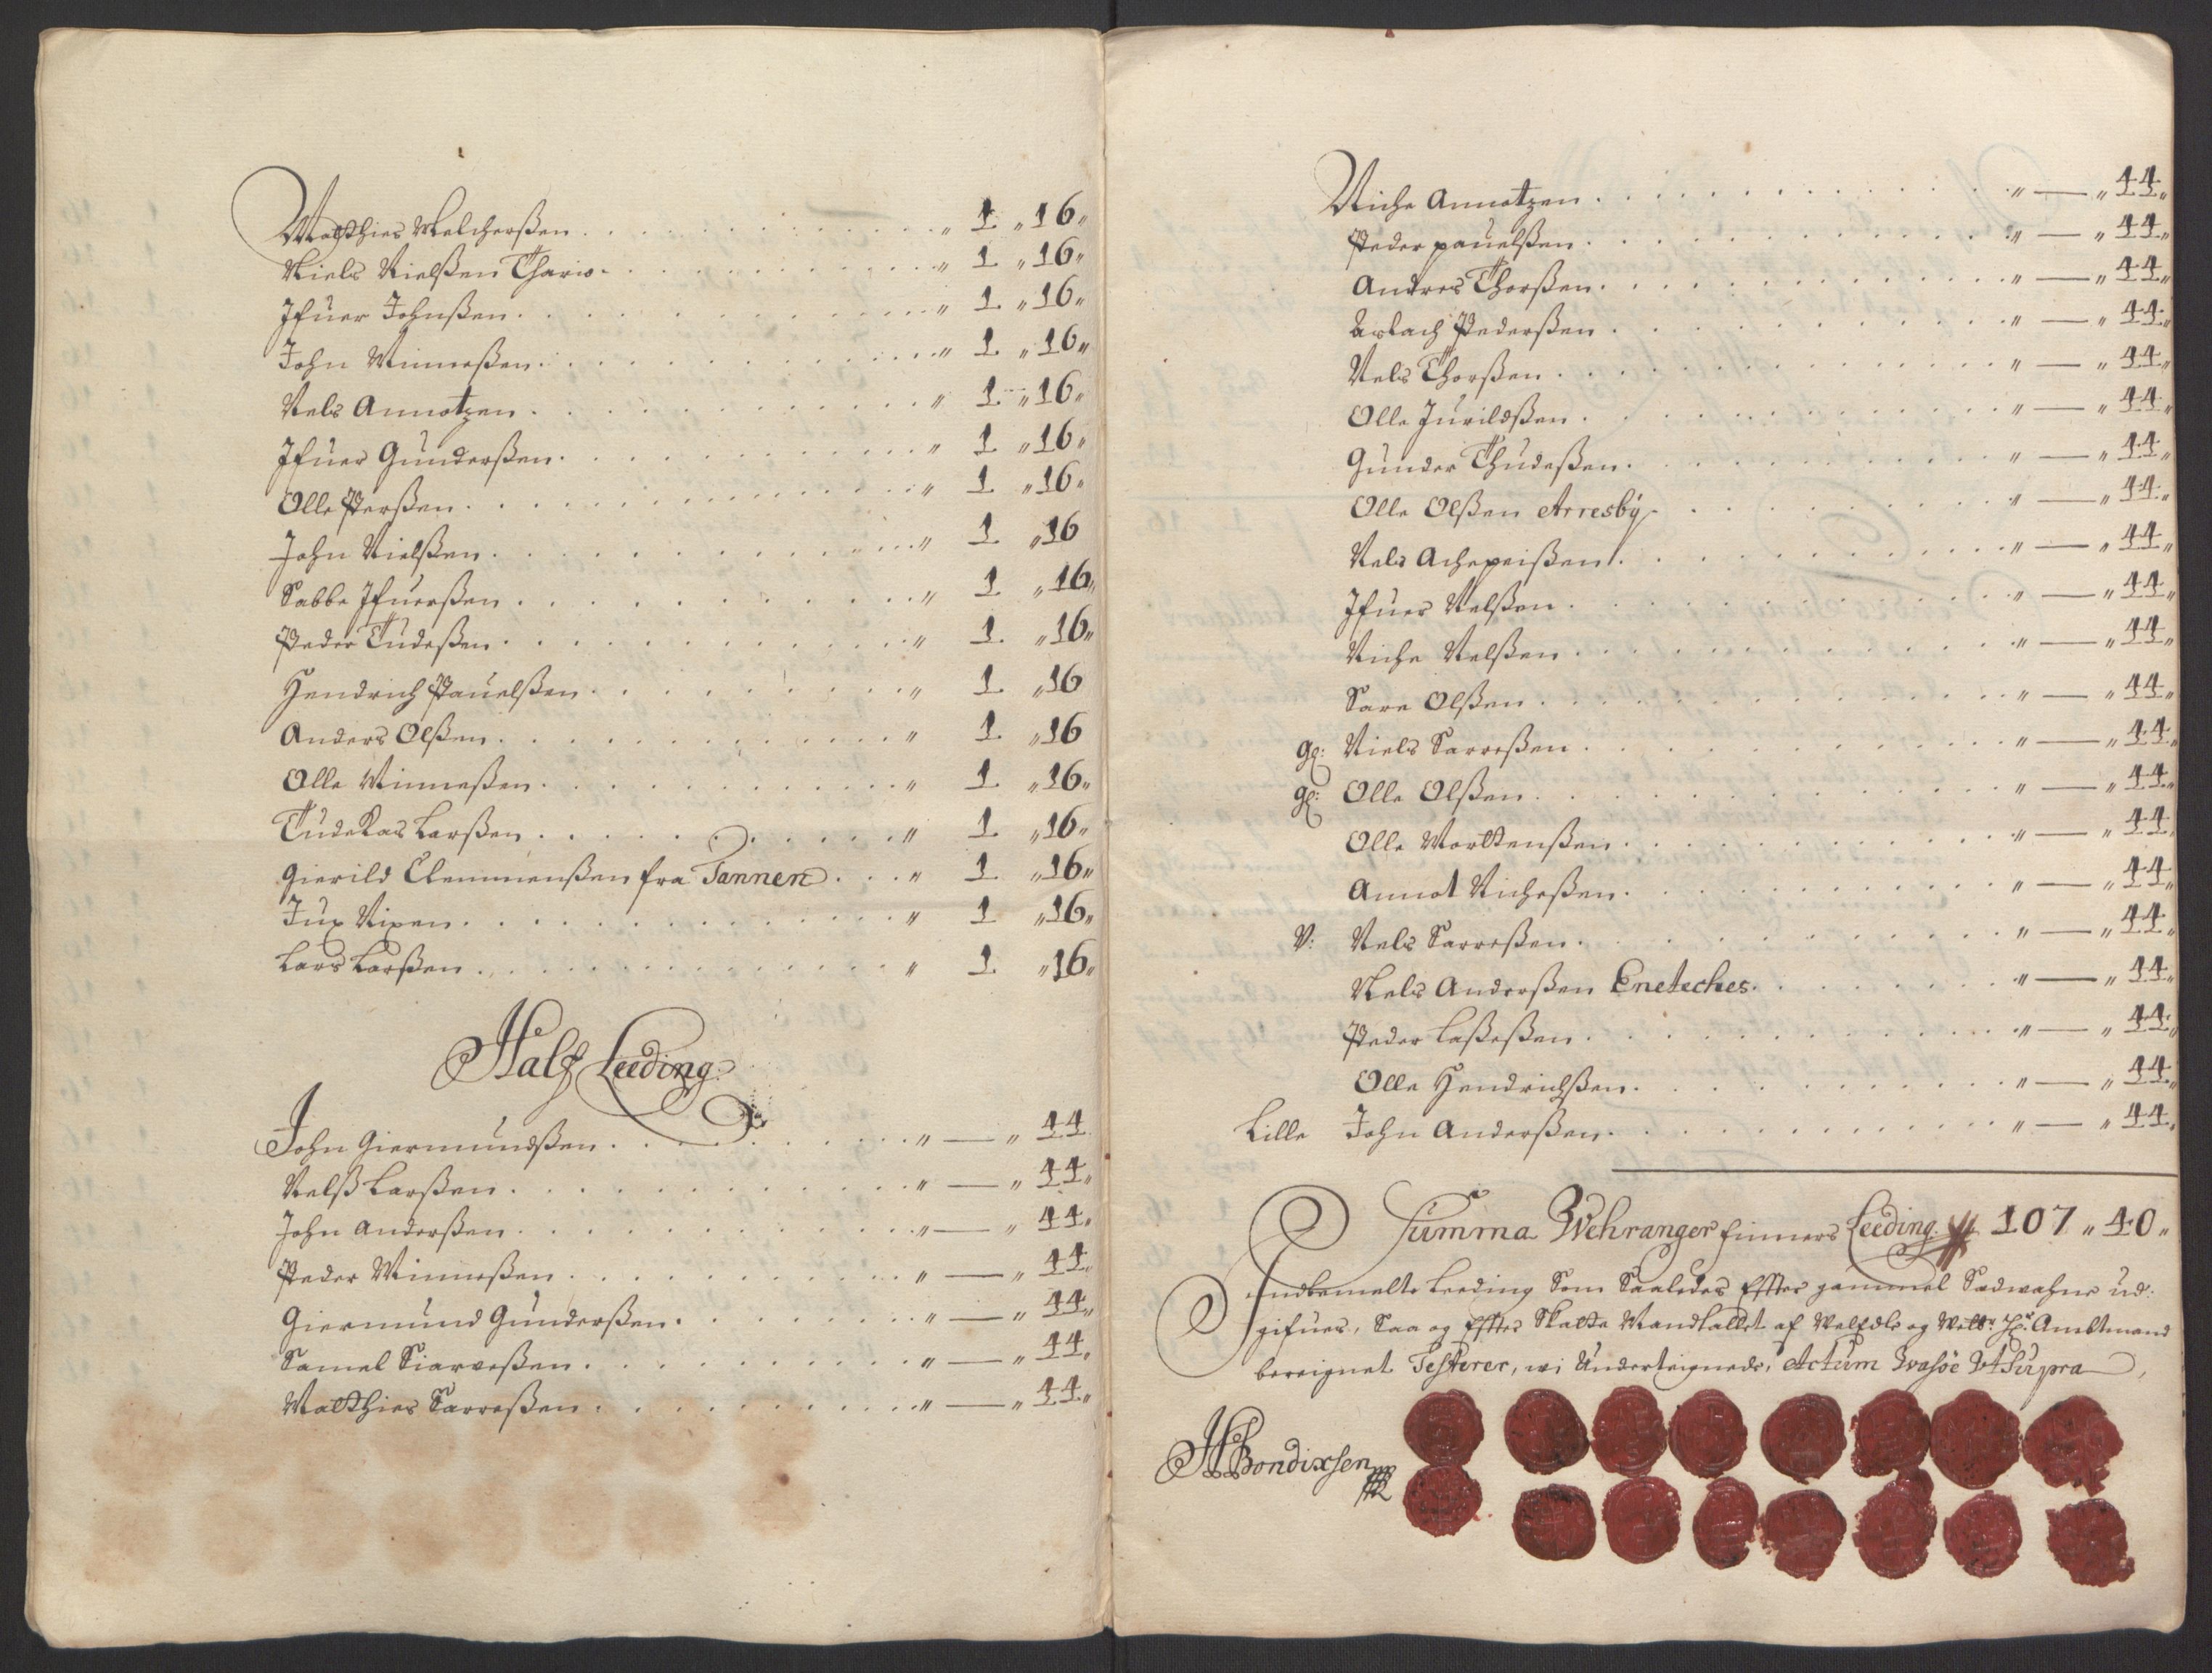 Matthies Melcherßen . . . „ 1 „ 16 „
Niels Nielßen Thario . . . „ 1 „ 16 „
Ifuer Johnßen . . . „ 1 „ 16 „
John Minneßen . . . „ 1 „ 16 „
Nels Annotzen . . . „ 1 „ 16 „
Ifuer Gunderßen . . . „ 1 „ 16 „
Olle Perßen . . . „ 1 „ 16 „
John Nielßen . . . „ 1 „ 16
Sabbe Ifuerßen . . . „ 1 „ 16 „
Peder Tudeßen . . . „ 1 „ 16 „
Hendrich Pauelßen . . . „ 1 „ 16
Anders Olßen . . . „ 1 „ 16
Olle Minneßen . . . „ 1 „ 16 „
Tudekas Larßen . . . „ 1 „ 16 „
Gierild Clemmenßen fra Tannen . . . „ 1 „ 16 „
Jux Nixen . . . „ 1 „ 16 „
Lars Larßen . . . „ 1 „ 16 „
Half Leeding
John Giermundßen . . . „ — „ 44
Nelß Larßen . . . „ — „ 44 „
John Anderßen . . . „ — „ 44 „
Peder Minneßen . . . „ — „ 44 „
Giermund Gunderßen . . . „ — „ 44 „
Samel Siarveßen . . . „ — „ 44 „
Matthies Sarreßen . . . „ — „ 44 „
Niche Annotzen . . . „ — „ 44 „
Peder pauelßen . . . „ — „ 44 „
Andres Thorßen . . . „ — „ 44 „
Aslach Pederßen . . . „ — „ 44 „
Nels Thorßen . . . „ — „ 44 „
Olle Jurildßen . . . „ — „ 44 „
Gunder Thudeßen . . . „ — „ 44 „
Olle Olßen Arresby . . . „ — „ 44 „
Nels Achepeißen . . . „ — „ 44 „
Ifuer Nelßen . . . „ — „ 44 „
Niche Nelßen . . . „ — „ 44 „
Sare Olßen . . . „ — „ 44 „
gl: Niels Sarreßen . . . „ — „ 44 „
gl: Olle Olßen . . . „ — „ 44 „
Olle Morttenßen . . . „ — „ 44 „
Annot Nicheßen . . . „ — „ 44 „
V: Nels Sarreßen . . . „ — „ 44 „
Nels Anderßen Eneteches . . . „ — „ 44 „
Peder Laßeßen . . . „ — „ 44 „
Olle Hendrichßen . . . „ — „ 44 „
Lille John Anderßen . . . „ — „ 44 „
Summa Wehranger finners Leeding 107 „ 40 „
Indbemelte Leeding Som Saaledes Effter gammel Sædwahne ud:
gifues, Saa og Effter Skatte Mandtallet af Velædle og Velb: Hr: Ambtmand
bereignet Testerer, wi Underteignede, Actum Wasöe Ut Supra
HBondixsen